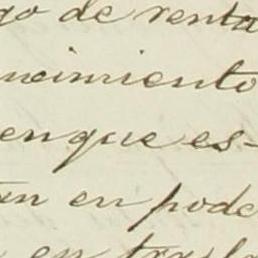 go de renta
ncimiento
en que es-
tán en pode
en trasla